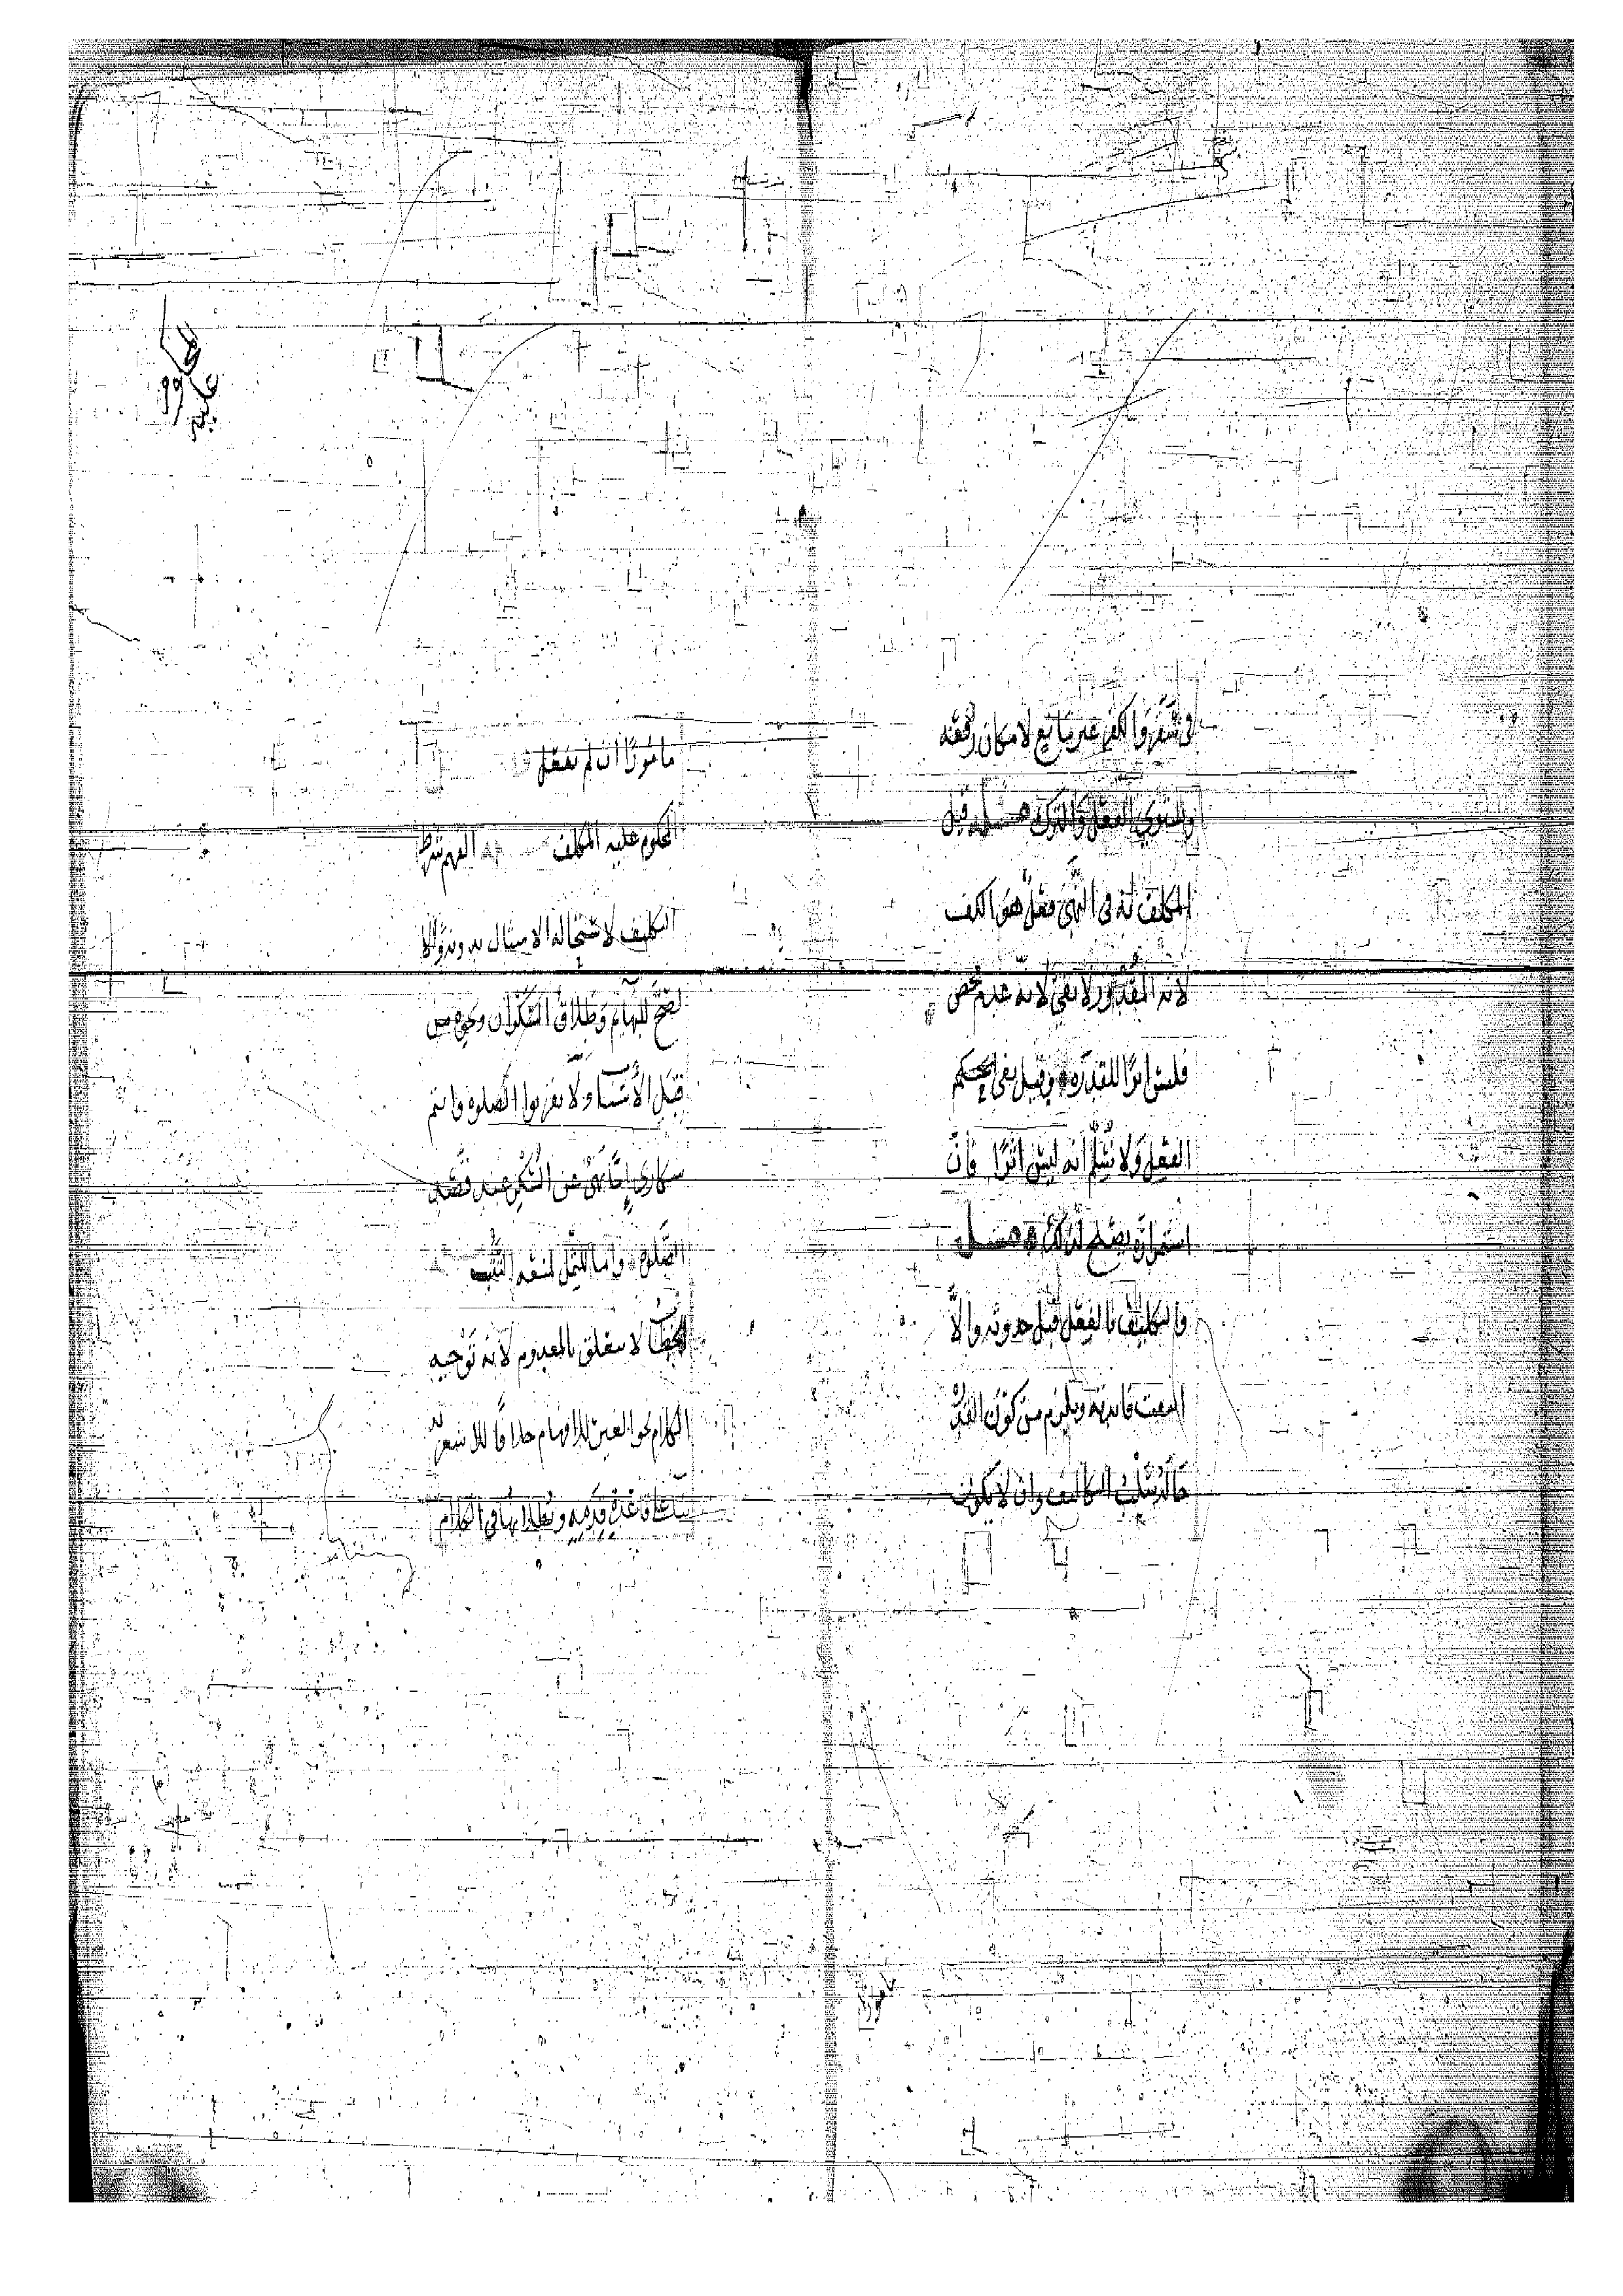 في سفر والكفر غير مانع لامكان رفعه
والمنوي الفعل والترك مسئلة قيل
المكلف به في النهي فعل هو الكف
لانه المقدور لا نفي لانه عدم محض
فليس اثرا للقدرة وقيل نفي
الفعل ولا نسلم انه ليس اثرا فان
استمراره يصلح لذلك مسئلة
والتكليف بالفعل قبل حدوثه والا
انتفت فائدته ويلزم من كون القدرة
حالة سلب التكاليف وان لا يكون
مامورا
مامورا ان لم يفعل
المحكوم عليه المكلف الفهم شرط
التكليف لاستحالة الامتثال بدونه والا
لصح للبهائم وطلاق السكران ونحوه من
قبيل الاسباب ولا تقربوا الصلوة وانتم
سكارى اما نهي عن السكر عند قصد
الصلوة واما للثمل لمنعه التثبت
الخطاب لا يتعلق بالمعدوم لانه توجيه
الكلام نحو الغير للافهام خلافا للاشعرية
بناء على قاعدة قدمه وبطلانها في الكلام